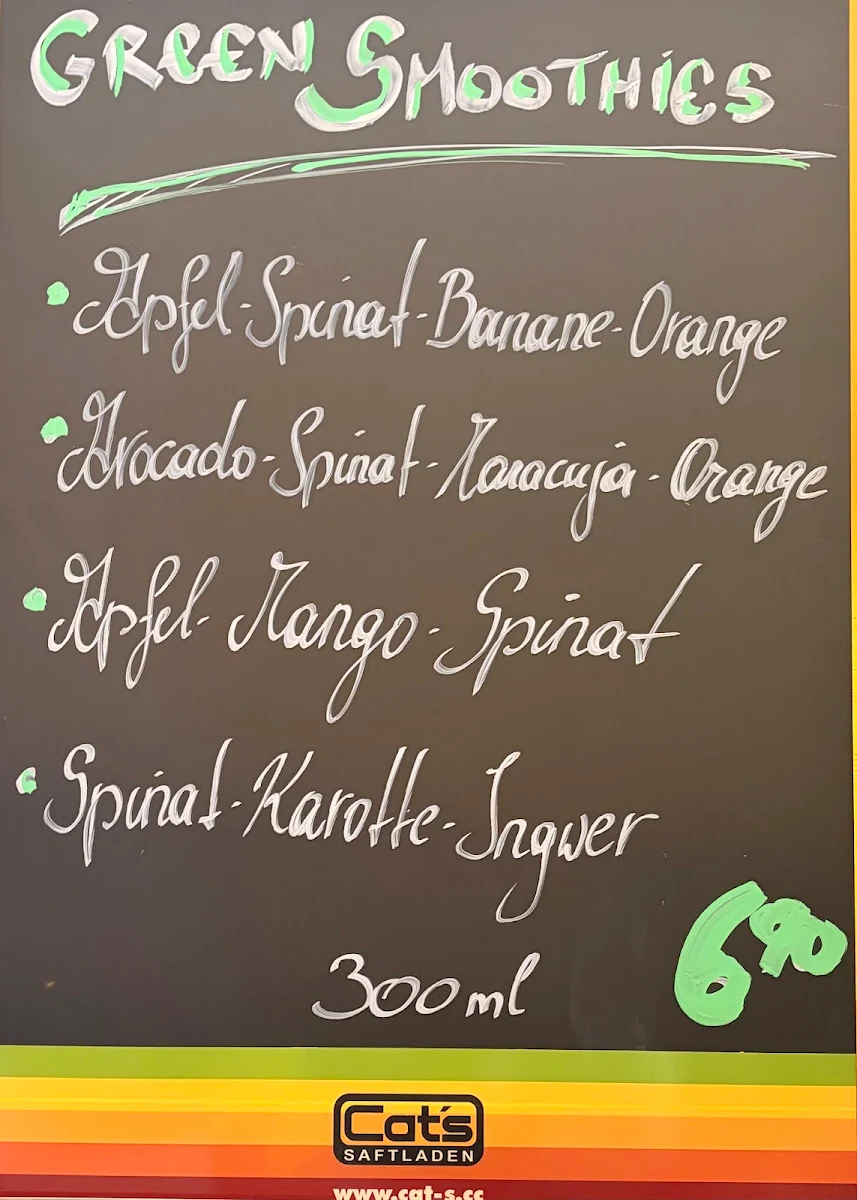 GREEN SMOOTHIES
Apfel-Spinat-Banane-Orange
Avocado-Spinat-Maracuja-Orange
Apfel-Mango-Spinat
Spinat-Karotte-Ingwer
6 90
300 ml
Cat's
SAFTLADEN
www.cat-s.cc